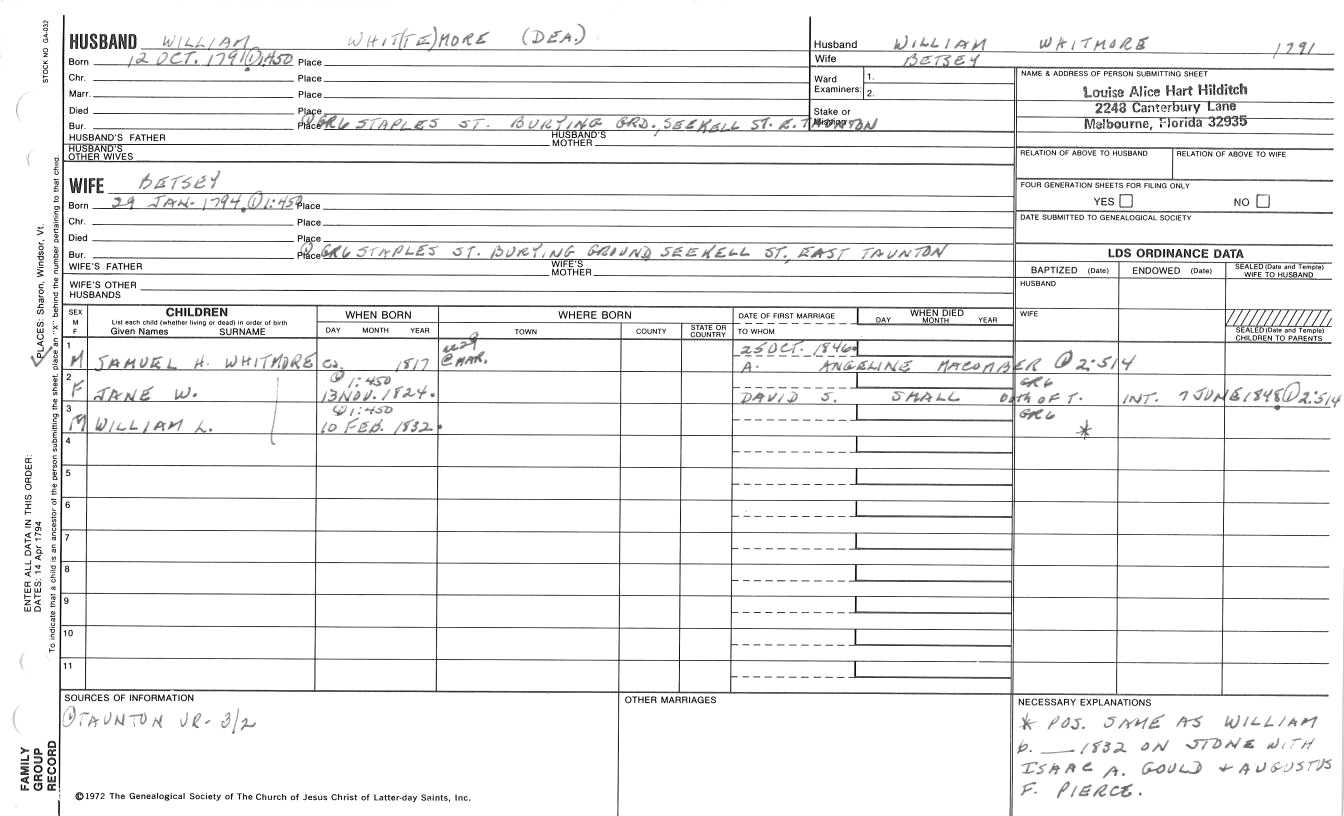 STOCK NO GA-032
HUSBAND WILLIAM WHIT(TE)MORE (DEA.)
Born 12 OCT. 1791 ① 1:450 Place
Chr. Place
Marr. Place
Died Place
Bur. Place ① GR6 STAPLES ST. BURYING GRD., SEEKELL ST. E. TAUNTON
HUSBAND'S FATHER HUSBAND'S MOTHER
HUSBAND'S OTHER WIVES
Husband WILLIAM WHITMORE 1791
Wife BETSEY
Ward Examiners: 1.
2.
Stake or
NAME & ADDRESS OF PERSON SUBMITTING SHEET
Louise Alice Hart Hilditch
2248 Canterbury Lane
Melbourne, Florida 32935
RELATION OF ABOVE TO HUSBAND RELATION OF ABOVE TO WIFE
FOUR GENERATION SHEETS FOR FILING ONLY
YES NO
DATE SUBMITTED TO GENEALOGICAL SOCIETY
WIFE BETSEY
Born 29 JAN. 1794. ① 1:450 Place
Chr. Place
Died Place
Bur. Place ① GR6 STAPLES ST. BURYING GROUND, SEEKELL ST., EAST TAUNTON
WIFE'S FATHER WIFE'S MOTHER
WIFE'S OTHER HUSBANDS
LDS ORDINANCE DATA
BAPTIZED (Date) ENDOWED (Date) SEALED (Date and Temple) WIFE TO HUSBAND
HUSBAND
WIFE
SEALED (Date and Temple) CHILDREN TO PARENTS
SEX M F CHILDREN List each child (whether living or dead) in order of birth Given Names SURNAME
WHEN BORN DAY MONTH YEAR
WHERE BORN TOWN COUNTY STATE OR COUNTRY
DATE OF FIRST MARRIAGE TO WHOM
WHEN DIED DAY MONTH YEAR
1 M SAMUEL H. WHITMORE ca. 1817 ae 29 @ MAR. 25 OCT. 1846. A. ANGELINE MACOMBER ① 2:514
2 F JANE W. ① 1:450 13 NOV. 1824. DAVID S. SMALL both OF T. INT. 7 JUNE 1848. ① 2:514 GR6
3 M WILLIAM L. ① 1:450 10 FEB. 1832. GR6 *
4
5
6
7
8
9
10
11
SOURCES OF INFORMATION
① TAUNTON VR- 3/2
OTHER MARRIAGES
NECESSARY EXPLANATIONS
* POS. SAME AS WILLIAM
b. __ 1832 ON STONE WITH
ISAAC A. GOULD + AUGUSTUS
F. PIERCE.
©1972 The Genealogical Society of The Church of Jesus Christ of Latter-day Saints, Inc.
FAMILY
GROUP
RECORD
ENTER ALL DATA IN THIS ORDER:
DATES: 14 Apr 1794
PLACES: Sharon, Windsor, Vt.
To indicate that a child is an ancestor of the person submitting the sheet, place an "X" behind the number pertaining to that child.